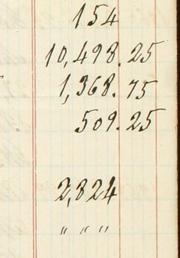 154
10,498.25
1,368.75
509.25
2,824
" " "